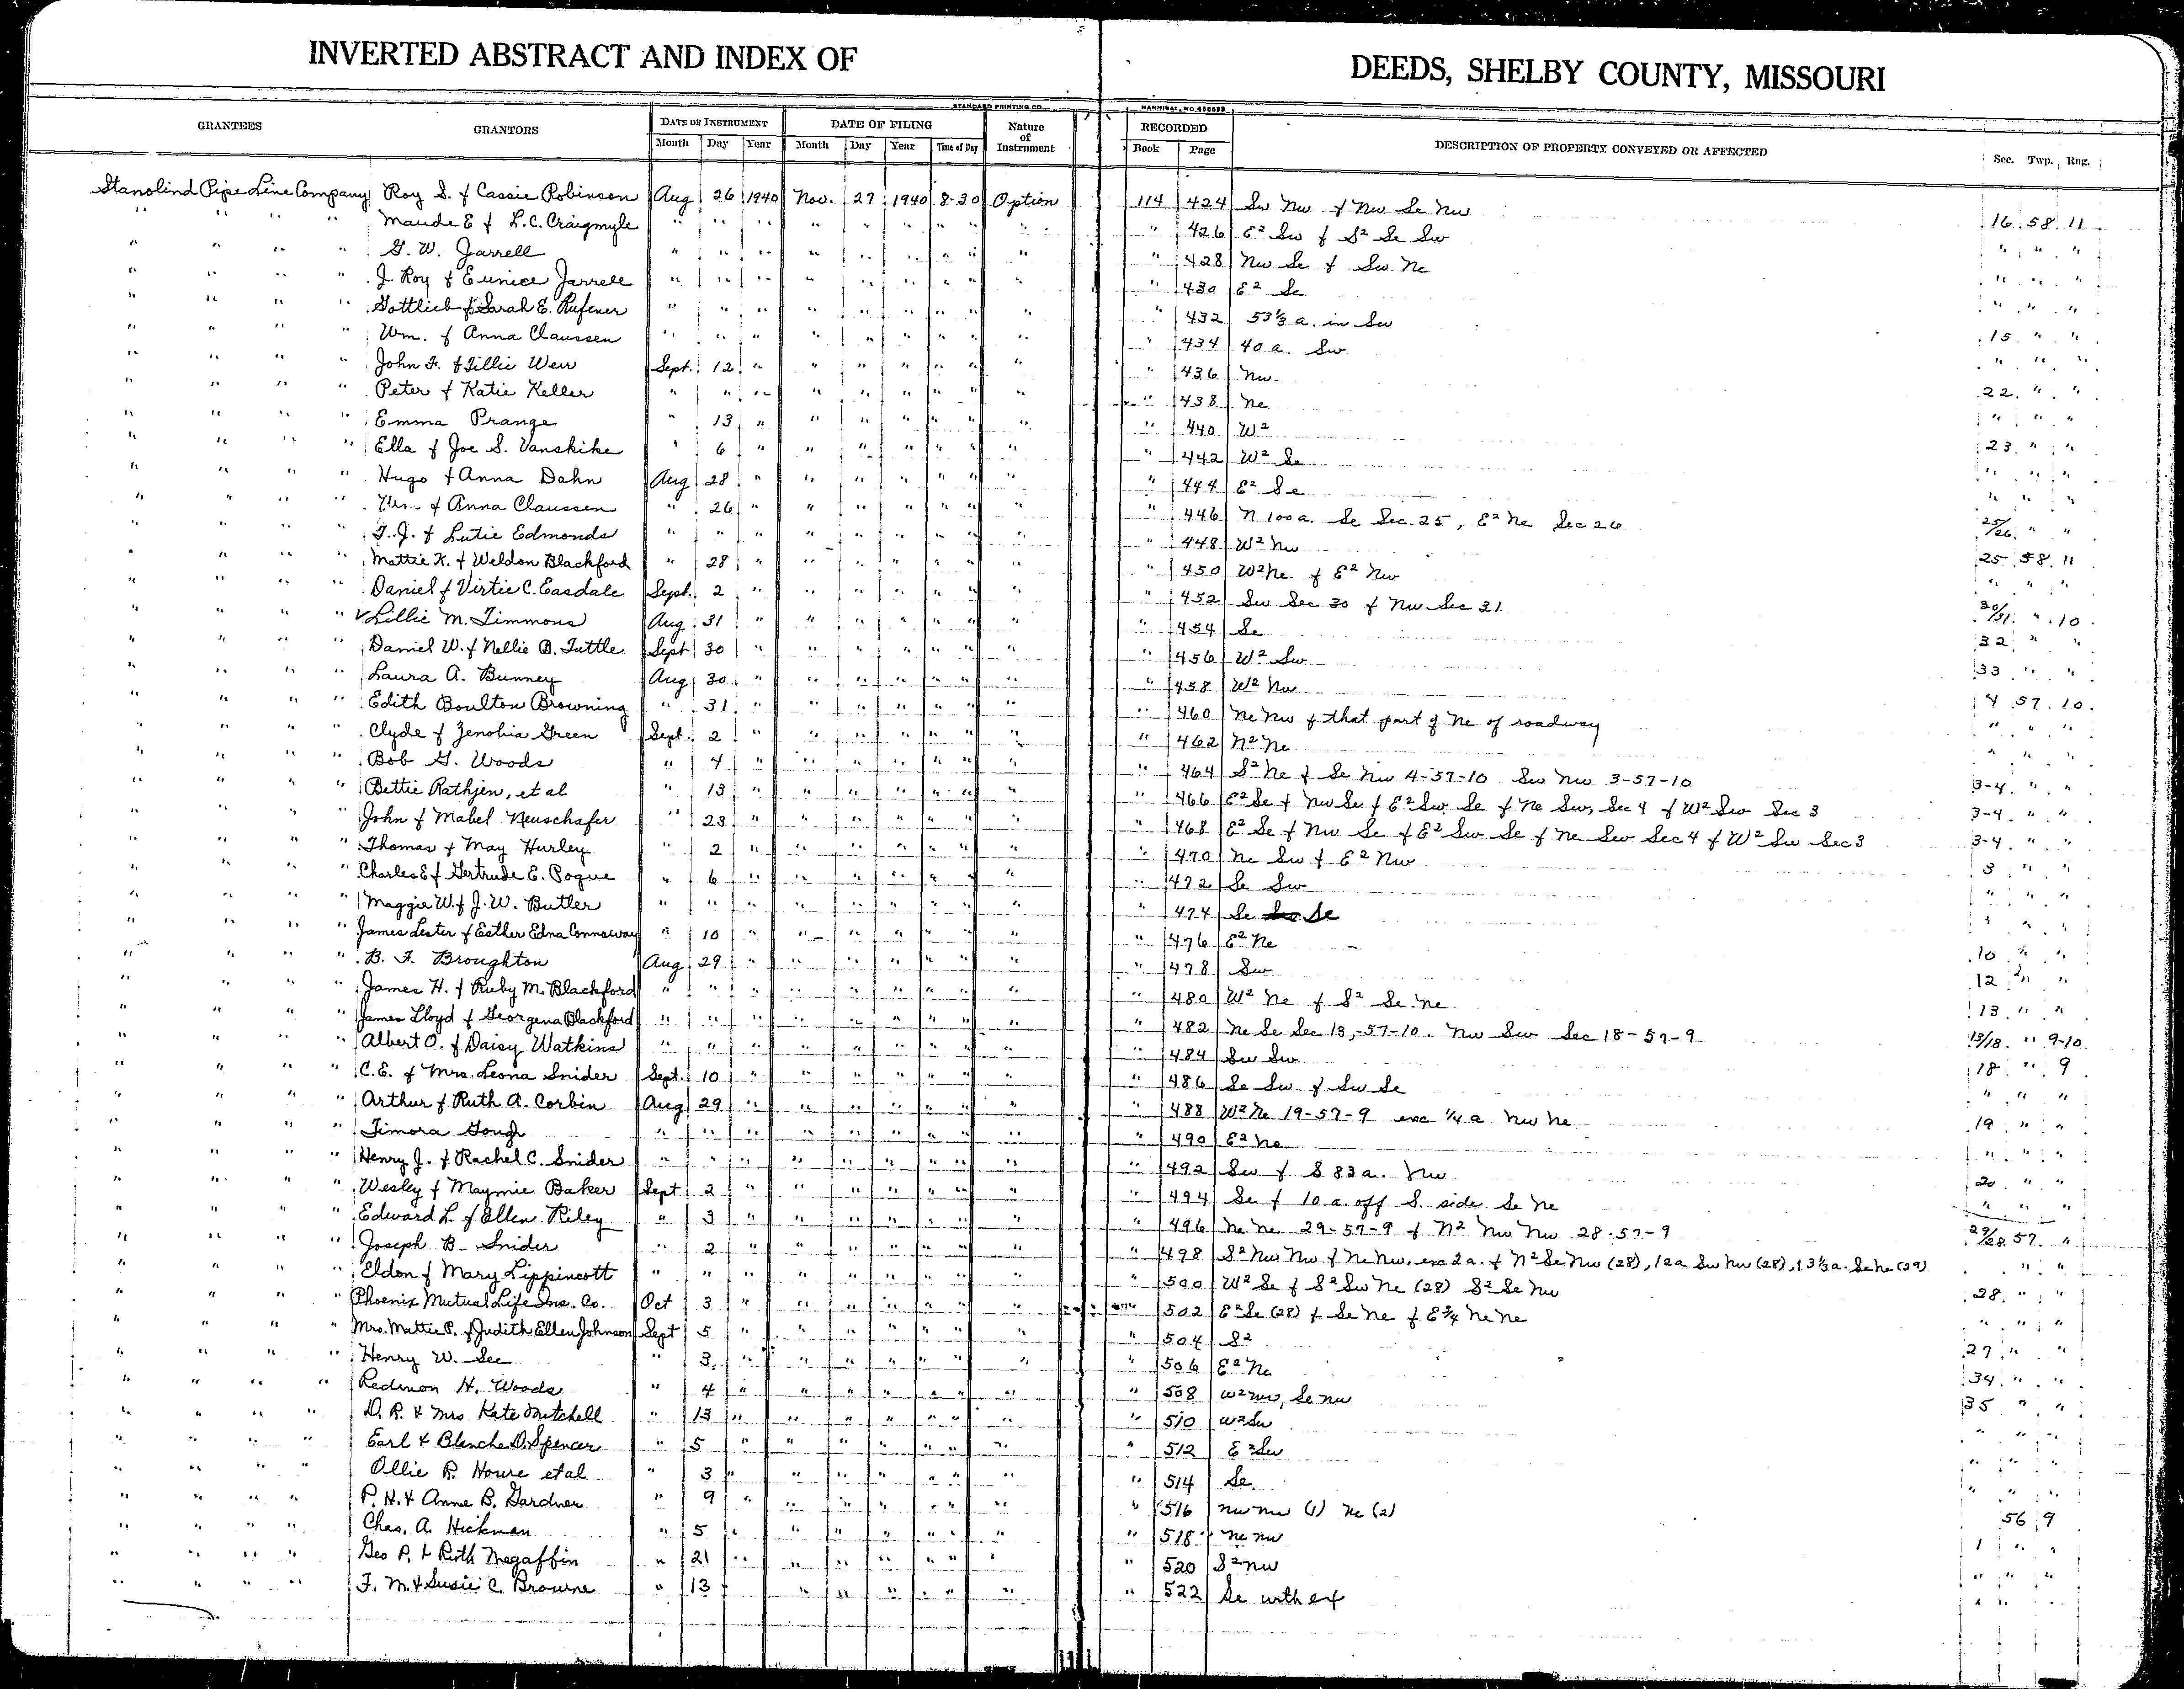 INVERTED ABSTRACT AND INDEX OF DEEDS, SHELBY COUNTY, MISSOURI
STANDARD PRINTING CO. HANNIBAL, NO.
GRANTEES GRANTORS DATE OF INSTRUMENT DATE OF FILING Nature of Instrument RECORDED DESCRIPTION OF PROPERTY CONVEYED OR AFFECTED Sec. Twp. Rng.
Month Day Year Month Day Year Time of Day Book Page
Stanolind Pipe Line Company Roy S. & Cassie Robinson Aug 26 1940 Nov. 27 1940 8-30 Option 114 424 Sw Nw & Nw Se Nw 16 58 11
" " " " Maude E & L.C. Craigmyle " " " " " " " " " 426 E² Sw & S² Se Sw " " "
" " " " G. W. Jarrell " " " " " " " " " 428 Nw Se & Sw Ne " " "
" " " " J. Roy & Eunice Jarrell " " " " " " " " " 430 E² Se " " "
" " " " Gottlieb & Sarah E. Rufener " " " " " " " " " 432 53⅓ a. in Sw 15 " "
" " " " Wm. & Anna Claussen " " " " " " " " " 434 40 a. Sw " " "
" " " " John F. & Tillie Weir Sept. 12 " " " " " " " 436 Nw 22 " "
" " " " Peter & Katie Keller " " " " " " " " " 438 Ne " " "
" " " " Emma Prange " 13 " " " " " " " 440 W² 23 " "
" " " " Ella & Joe S. Vanskike " 6 " " " " " " " 442 W² Se " " "
" " " " Hugo & Anna Dahn Aug 28 " " " " " " " 444 E² Se " " "
" " " " Wm & Anna Claussen " 26 " " " " " " " 446 N 100 a. Se Sec. 25, E² Ne Sec 26 25/26 " "
" " " " T. J. & Lutie Edmonds " " " " " " " " " 448 W² Nw 25 58 11
" " " " Mattie K. & Weldon Blackford " 28 " " " " " " " 450 W² Ne & E² Nw " " "
" " " " Daniel & Virtie C. Easdale Sept. 2 " " " " " " " 452 Sw Sec 30 & Nw Sec 31 30/31 " 10
" " " " Lillie M. Timmons Aug 31 " " " " " " " 454 Se 32 " "
" " " " Daniel W. & Nellie B. Tuttle Sept 30 " " " " " " " 456 W² Sw 33 " "
" " " " Laura A. Bunney Aug 30 " " " " " " " 458 W² Nw 4 57 10
" " " " Edith Boulton Browning " 31 " " " " " " " 460 Ne Nw & that part of Ne of roadway " " "
" " " " Clyde & Zenobia Green Sept. 2 " " " " " " " 462 N² Ne " " "
" " " " Bob G. Woods " 4 " " " " " " " 464 S² Ne & Se Nw 4-57-10 Sw Nw 3-57-10 3-4 " "
" " " " Bettie Rathjen, et al " 13 " " " " " " " 466 E² Se & Nw Se & E² Sw Se & Ne Sw, Sec 4 & W² Sw Sec 3 3-4 " "
" " " " John & Mabel Neuschafer " 23 " " " " " " " 468 E² Se & Nw Se & E² Sw Se & Ne Sw Sec 4 & W² Sw Sec 3 3-4 " "
" " " " Thomas & May Hurley " 2 " " " " " " " 470 Ne Sw & E² Nw 3 " "
" " " " Charles E & Gertrude E. Pogue " 6 " " " " " " " 472 Se Sw " " "
" " " " Maggie W. & J. W. Butler " " " " " " " " " 474 Se Se " " "
" " " " James Lester & Esther Edna Connaway " 10 " " " " " " " 476 E² Ne 10 " "
" " " " B. F. Broughton Aug 29 " " " " " " " 478 Sw 12 " "
" " " " James H. & Ruby M. Blackford " " " " " " " " " 480 W² Ne & S² Se Ne 13 " "
" " " " James Lloyd & Georgena Blackford " " " " " " " " " 482 Ne Se Sec 13,-57-10. Nw Sw Sec 18-57-9 13/18 " 9-10
" " " " Albert O. & Daisy Watkins " " " " " " " " " 484 Sw Sw 18 " 9
" " " " C. E. & Mrs. Leona Snider Sept. 10 " " " " " " " 486 Se Sw & Sw Se " " "
" " " " Arthur & Ruth A. Corbin Aug 29 " " " " " " " 488 W² Ne 19-57-9 exc ¼ a Nw Ne 19 " "
" " " " Timora Gough " " " " " " " " " 490 E² Ne " " "
" " " " Henry J. & Rachel C. Snider " " " " " " " " " 492 Sw & S 83 a. Nw 20 " "
" " " " Wesley & Maymie Baker Sept 2 " " " " " " " 494 Se & 10 a. off S. side Se Ne " " "
" " " " Edward L. & Ellen Riley " 3 " " " " " " " 496 Ne Ne 29-57-9 & N² Nw Nw 28-57-9 29/28 57 "
" " " " Joseph B Snider " 2 " " " " " " " 498 S² Nw Nw & Ne Nw, exc 2 a. & N² Se Nw (28), 12a Sw Nw (28), 13⅓ a. Se Ne (29) " " "
" " " " Eldon & Mary Lippincott " " " " " " " " " 500 W² Se & S² Sw Ne (28) S² Se Nw 28 " "
" " " " Phoenix Mutual Life Ins. Co. Oct 3 " " " " " " " 502 E² Se (28) & Se Ne & E ¾ Ne Ne " " "
" " " " Mrs. Mattie P. & Judith Ellen Johnson Sept 5 " " " " " " " 504 S² 27 " "
" " " " Henry W. See " 3 " " " " " " " 506 E² Ne 34 " "
" " " " Redmon H. Woods " 4 " " " " " " " 508 W² Nw, Se Nw 35 " "
" " " " D. R. & Mrs Kate Mitchell " 13 " " " " " " " 510 W² Sw " " "
" " " " Earl & Blenche D. Spencer " 5 " " " " " " " 512 E² Sw " " "
" " " " Ollie R. Howe et al " 3 " " " " " " " 514 Se " " "
" " " " P. H. & Anne B. Gardner " 9 " " " " " " " 516 Nw Nw (1) Ne (2) 56 9
" " " " Chas. A. Hickman " 5 " " " " " " " 518 Ne Nw 1 " "
" " " " Geo P. & Ruth Megaffin " 21 " " " " " " " 520 S² Nw " " "
" " " " F. M. & Susie C. Browne " 13 " " " " " " 522 Se with ex " " "